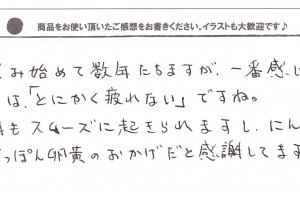 商品をお使い頂いたご感想をお書きください。イラストも大歓迎です♪
み始めて数年たちますが、一番感じ
は、「とにかく疲れない」ですね。
もスムーズに起きられますし、にん
っぽん卵黄のおかげだと感謝してます